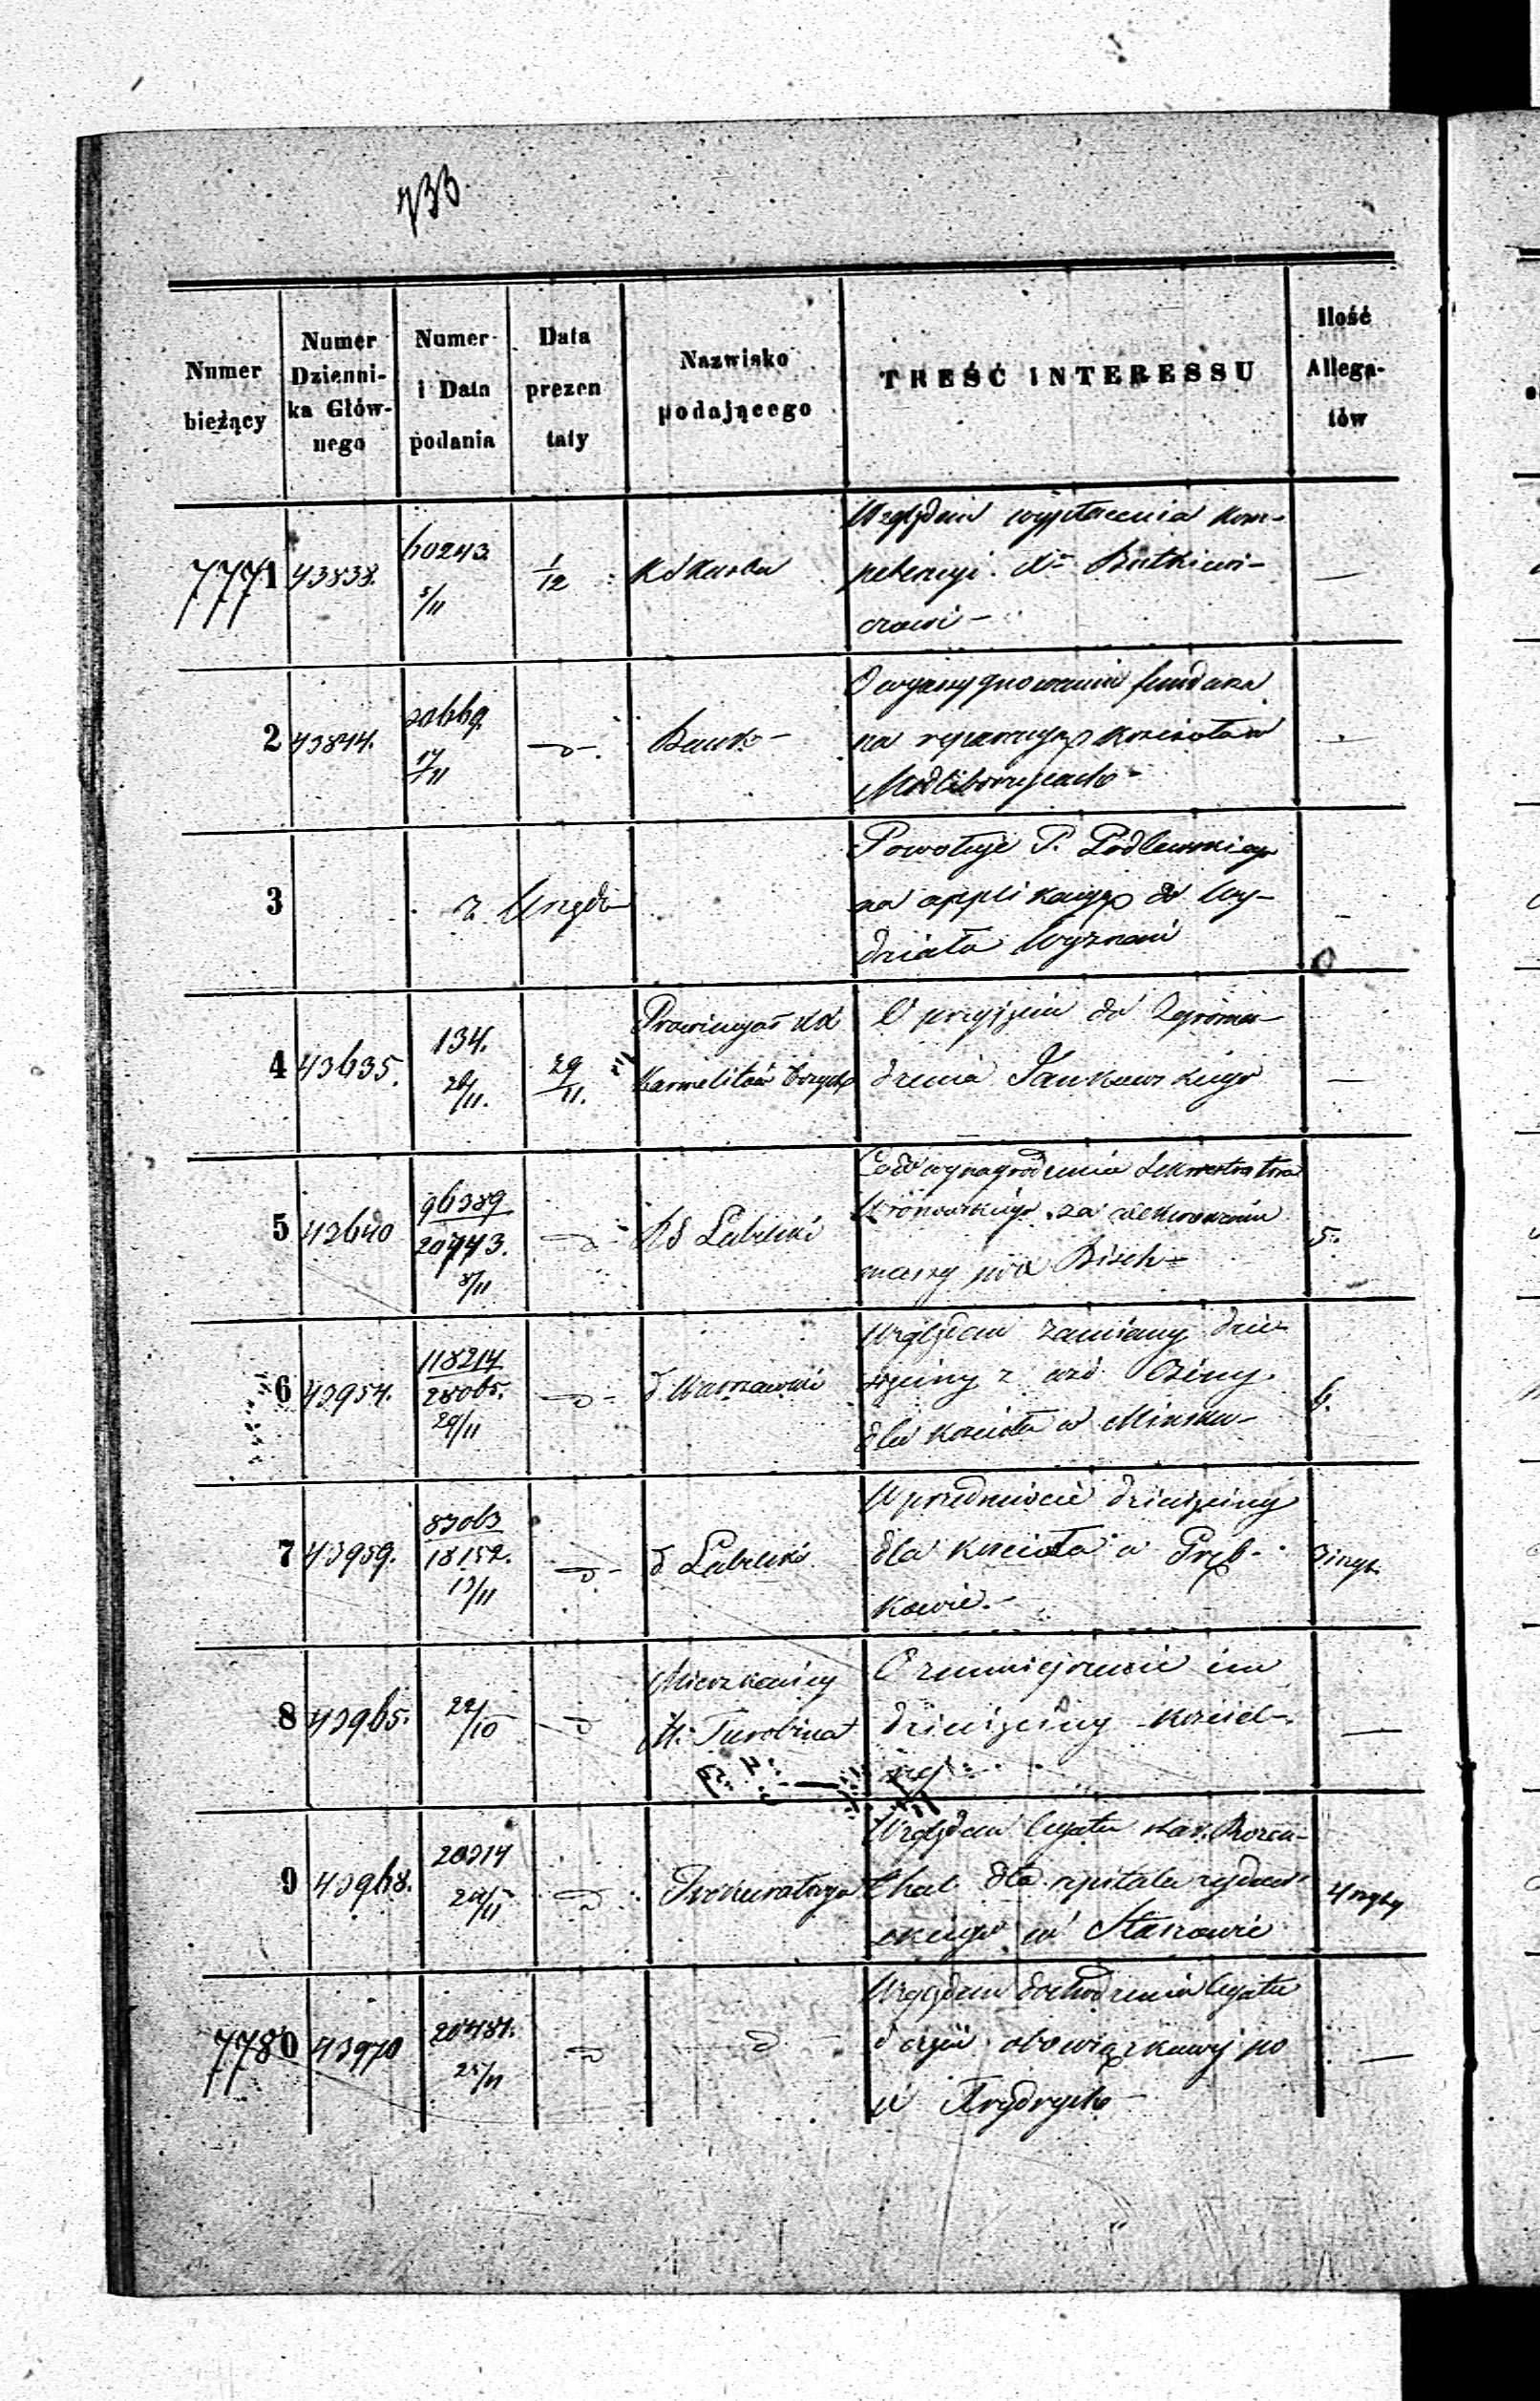 733
Numer bieżący
Numer Dzienni-ka Głów-nego
Numer i Data podania
Data prezen taty
Nazwisko podającego
TREŚĆ INTERESSU
Ilość Allega-tów
7771 43838. 60243 5/11 1/12 K d Skarbu
Względem wypłacenia kom-
petencyi Xu Butkiewi-
czowi -
—
2 43844. 20669. 17/11 -d- Bank -
O wyassygnowanie fundusz
na reperacyę kościoła w
Modliborzycach -
-
3 z Urzędu
Powołuje P. Podlewskiego
na applikacyę do Wy-
działu Wyznań
-
4 43635. 134. 26/11. 29/11.
Prowincyał XX
Karmelitów Trzych
O przyjęcie do Zgroma-
dzenia Jankowskiego
—
5 43640 96389 20743. 8/11 -d- Rd Lubelski
Co do wynagrodzenia Sekwestratora
Wronowskiego za
massy pod Bisch-
5.
6 43954. 118214 28065. 29/11 -d- d Warszawski
Względem zamiany dzie-
sięciny z wsi
dla kościoła w Mińsku -
6.
7 43959. 83063 18152. 13/11 -d- d Lubelski
W przedmiocie dziesięciny
dla kościoła w
kowie. -
3 szyt.
8 43965. 22/10 -d
Mieszkańcy
M. Turobina
O zmniejszenie im
dziesięciny kościel-
nej
—
9 43968. 20314 24/11 -d- Prokuratorya
Względem legatu star. Rozen-
thal dla szpitala żydow-
skiego w Staszowie
4 szyty
7780 43970 20484. 25/11 d d
Względem dochodzenia legatu
części obowiązkowej po
Frydrych -
—